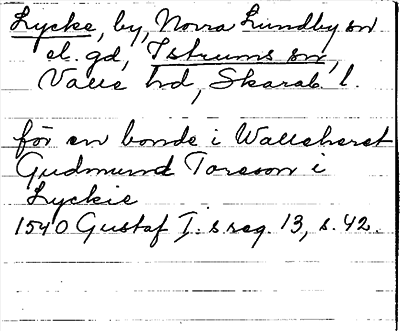 Lycke, by, Norra Lundby sn
el. gd, Istrums sn,
Valle hd, Skarab. l.
för en bonde i Walleheret
Gudmund Toreson i
Lyckie
1540 Gustaf I:s reg. 13, s. 42.